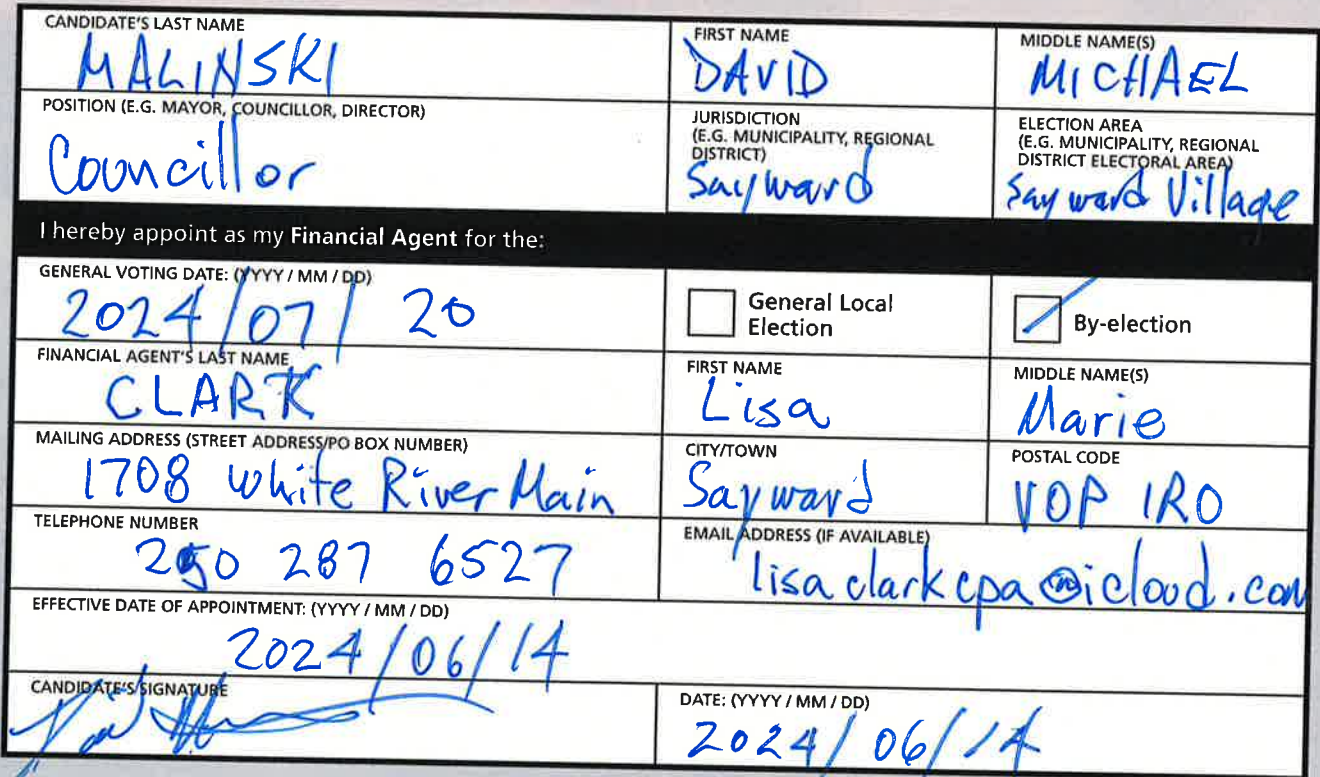 CANDIDATE'S LAST NAME
MALINSKI
FIRST NAME
DAVID
MIDDLE NAME(S)
MICHAEL
POSITION (E.G. MAYOR, COUNCILLOR, DIRECTOR)
Councillor
JURISDICTION
(E.G. MUNICIPALITY, REGIONAL
DISTRICT)
Sayward
ELECTION AREA
(E.G. MUNICIPALITY, REGIONAL
DISTRICT ELECTORAL AREA)
Sayward Village
I hereby appoint as my Financial Agent for the:
GENERAL VOTING DATE: (YYYY / MM / DD)
2024/07/ 20
General Local
Election
By-election
FINANCIAL AGENT'S LAST NAME
CLARK
FIRST NAME
Lisa
MIDDLE NAME(S)
Marie
MAILING ADDRESS (STREET ADDRESS/PO BOX NUMBER)
1708 White River Main
CITY/TOWN
Sayward
POSTAL CODE
V0P 1R0
TELEPHONE NUMBER
250 287 6527
EMAIL ADDRESS (IF AVAILABLE)
lisaclarkcpa@icloud.com
EFFECTIVE DATE OF APPOINTMENT: (YYYY / MM / DD)
2024/06/14
CANDIDATE'S SIGNATURE
DATE: (YYYY / MM / DD)
2024/06/14